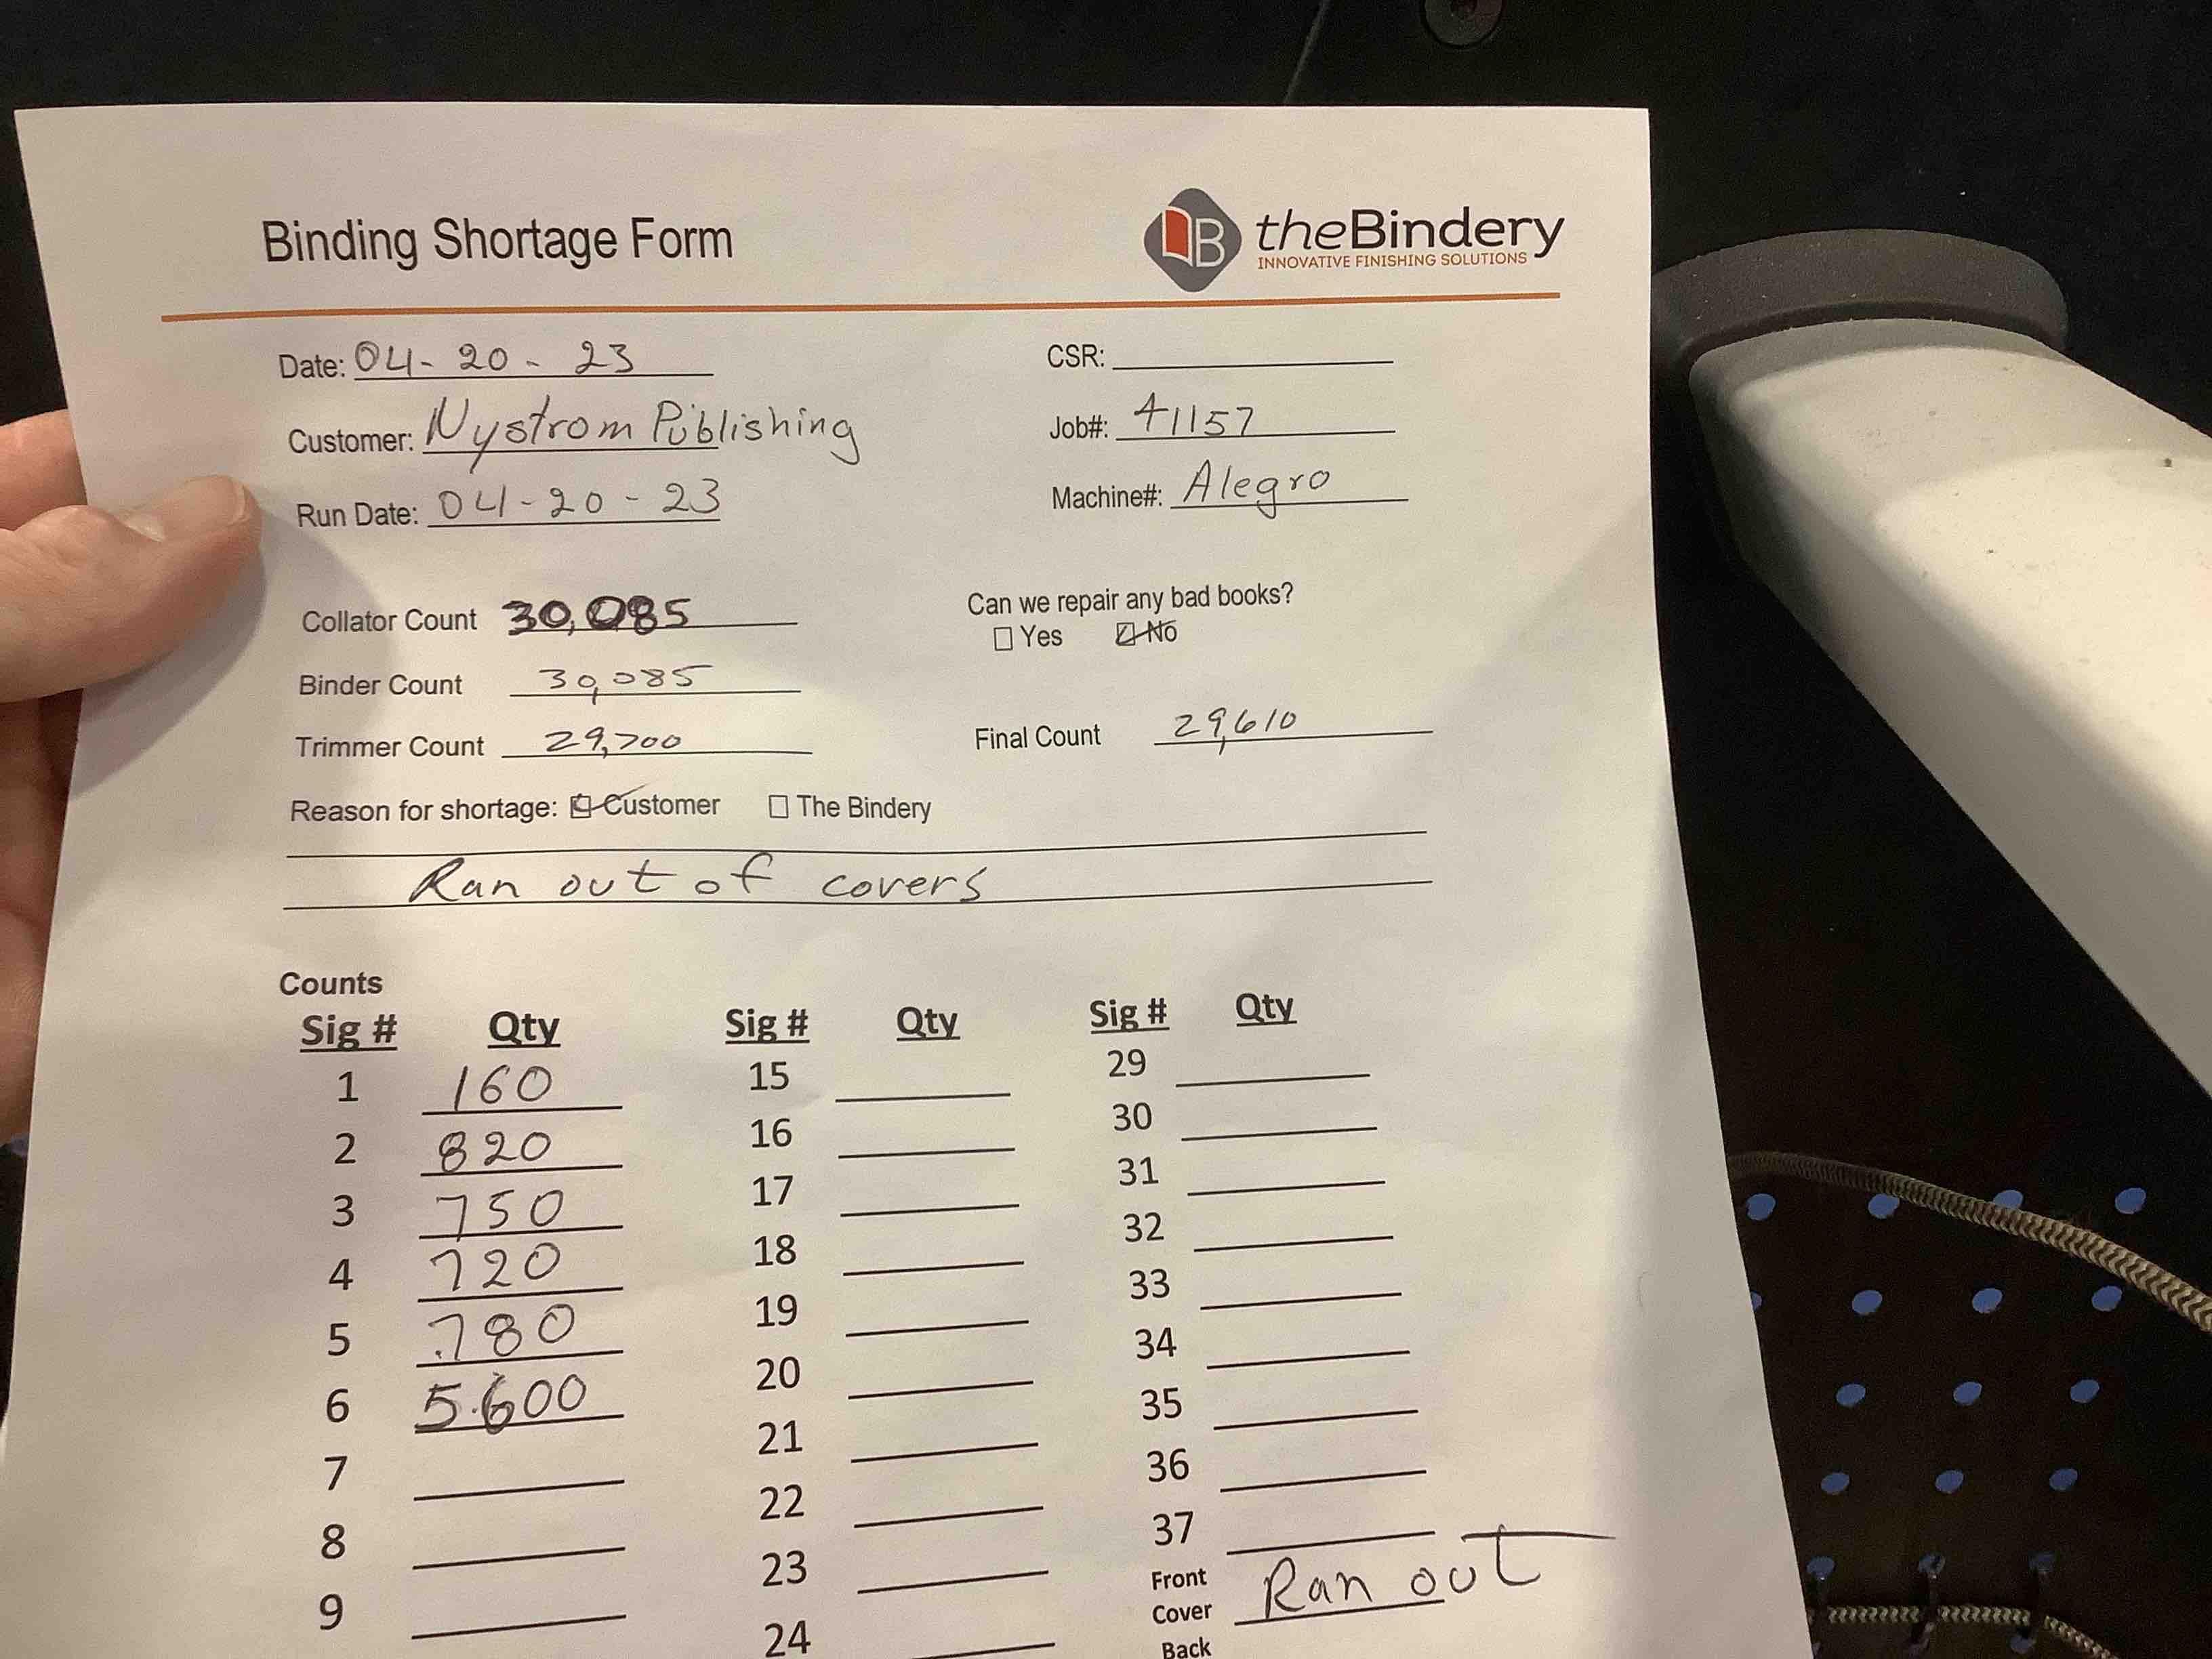 Binding Shortage Form
B theBindery
INNOVATIVE FINISHING SOLUTIONS
Date: 04-20-23
CSR:
Customer: Nystrom Publishing
Job#: 41157
Run Date: 04-20-23
Machine#: Alegro
Collator Count 30,085
Can we repair any bad books?
Yes No
Binder Count 30,085
Trimmer Count 29,700
Final Count 29,610
Reason for shortage: Customer The Bindery
Ran out of covers
Counts
Sig # Qty Sig # Qty Sig # Qty
1 160 15 29
2 820 16 30
3 750 17 31
4 720 18 32
5 .780 19 33
6 5.600 20 34
7 21 35
8 22 36
9 23 37
Front
Cover Ran out
24 Back